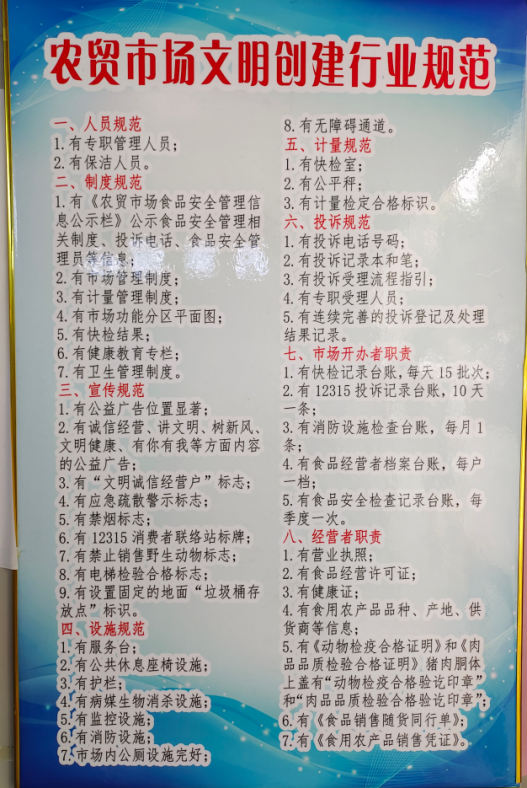 农贸市场文明创建行业规范
一、人员规范
1.有专职管理人员；
2.有保洁人员。
二、制度规范
1.有《农贸市场食品安全管理信
息公示栏》公示食品安全管理相
关制度、投诉电话、食品安全管
理员等信息；
2.有市场管理制度；
3.有计量管理制度；
4.有市场功能分区平面图；
5.有快检结果；
6.有健康教育专栏；
7.有卫生管理制度。
三、宣传规范
1.有公益广告位置显著；
2.有诚信经营、讲文明、树新风、
文明健康、有你有我等方面内容
的公益广告；
3.有“文明诚信经营户”标志；
4.有应急疏散警示标志；
5.有禁烟标志；
6.有12315消费者联络站标牌；
7.有禁止销售野生动物标志；
8.有电梯检验合格标志；
9.有设置固定的地面“垃圾桶存
放点”标识。
四、设施规范
1.有服务台；
2.有公共休息座椅设施；
3.有护栏；
4.有病媒生物消杀设施；
5.有监控设施；
6.有消防设施；
7.市场内公厕设施完好；
8.有无障碍通道。
五、计量规范
1.有快检室；
2.有公平秤；
3.有计量检定合格标识。
六、投诉规范
1.有投诉电话号码；
2.有投诉记录本和笔；
3.有投诉受理流程指引；
4.有专职受理人员；
5.有连续完善的投诉登记及处理
结果记录。
七、市场开办者职责
1.有快检记录台账，每天15批次；
2.有12315投诉记录台账，10天
一条；
3.有消防设施检查台账，每月1
条；
4.有食品经营者档案台账，每户
一档；
5.有食品安全检查记录台账，每
季度一次。
八、经营者职责
1.有营业执照；
2.有食品经营许可证；
3.有健康证；
4.有食用农产品品种、产地、供
货商等信息；
5.有《动物检疫合格证明》和《肉
品品质检验合格证明》猪肉胴体
上盖有“动物检疫合格验讫印章”
和“肉品品质检验合格验讫印章”；
6.有《食品销售随货同行单》；
7.有《食用农产品销售凭证》。